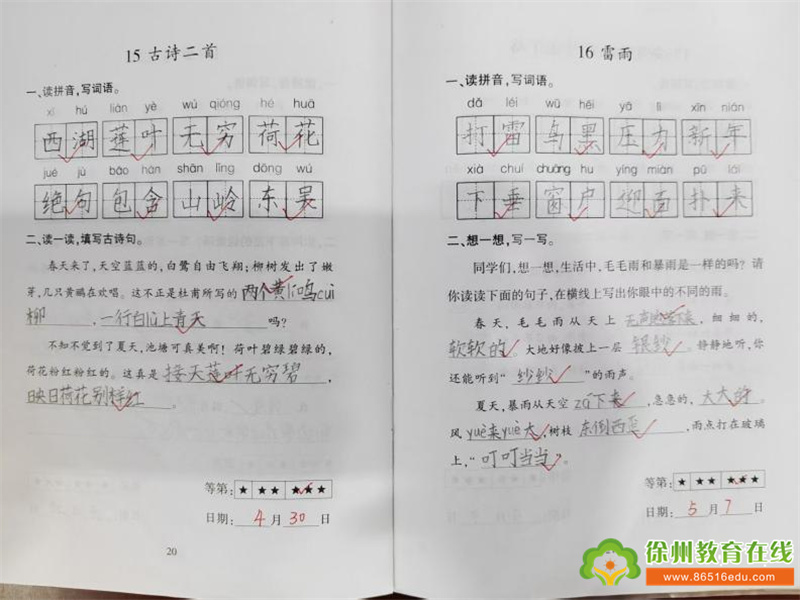 15 古诗二首
一、读拼音，写词语。
xī hú lián yè wú qióng hé huā
西湖 莲叶 无穷 荷花
jué jù bāo hán shān lǐng dōng wú
绝句 包含 山岭 东吴
二、读一读，填写古诗句。
春天来了，天空蓝蓝的，白鹭自由飞翔；柳树发出了嫩
芽，几只黄鹂在欢唱。这不正是杜甫所写的两个黄lí鸣cuì
柳，一行白lù上青天吗？
不知不觉到了夏天，池塘可真美啊！荷叶碧绿碧绿的，
荷花粉红粉红的。这真是接天莲叶无穷碧，
映日荷花别样红。
等第：★ ★★ ★★★
日期：4月30日
20
16 雷雨
一、读拼音，写词语。
dǎ léi wū hēi yā lì xīn nián
打雷 乌黑 压力 新年
xià chuí chuāng hu yíng miàn pū lái
下垂 窗户 迎面 扑来
二、想一想，写一写。
同学们，想一想，生活中，毛毛雨和暴雨是一样的吗？请
你读读下面的句子，在横线上写出你眼中的不同的雨。
春天，毛毛雨从天上落下来，细细的，
软软的。大地好像披上一层银纱。静静地听，你
还能听到“纱纱”的雨声。
夏天，暴雨从天空zá下来，急急的，大大的。
风yuè来yuè大，树枝东倒西歪，雨点打在玻璃
上，“叮叮当当”。
等第：★ ★★ ★★★
日期：5月7日
徐州教育在线
www.86516edu.com